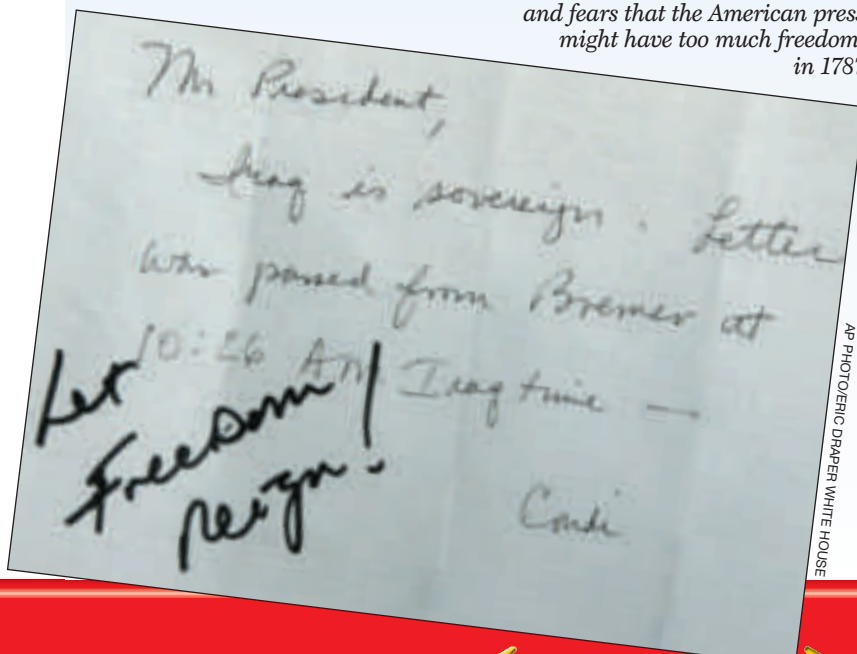 and fears that the American press
might have too much freedom
in 1787
Mr President,
Iraq is sovereign. Letter
was passed from Bremer at
10:26 AM Iraq time —
Condi
Let
Freedom
reign!
AP PHOTO/ERIC DRAPER WHITE HOUSE